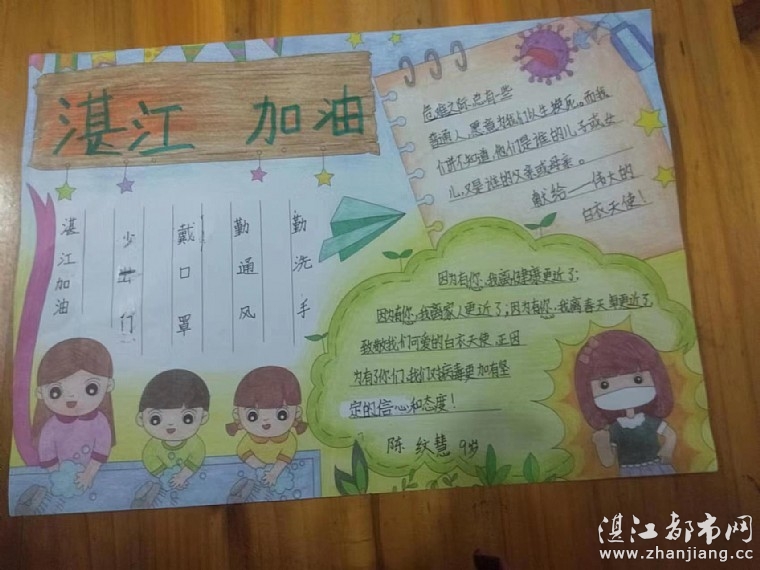 湛江 加油
危难之际,总有一些
普通人,愿意为我们以生换死。而我
们并不知道,他们是谁的儿子或女
儿,又是谁的父亲或母亲。
献给——伟大的
白衣天使!
勤洗手
勤通风
戴口罩
少出门
湛江加油
因为有你,我离健康更近了;
因为有你,我离家人更近了;因为有你,我离春天更近了
致敬我们可爱的白衣天使,正因
为有了你们,我们对病毒更加有坚
定的信心和态度!
陈 纹慧 9岁
湛江都市网
www.zhanjiang.cc